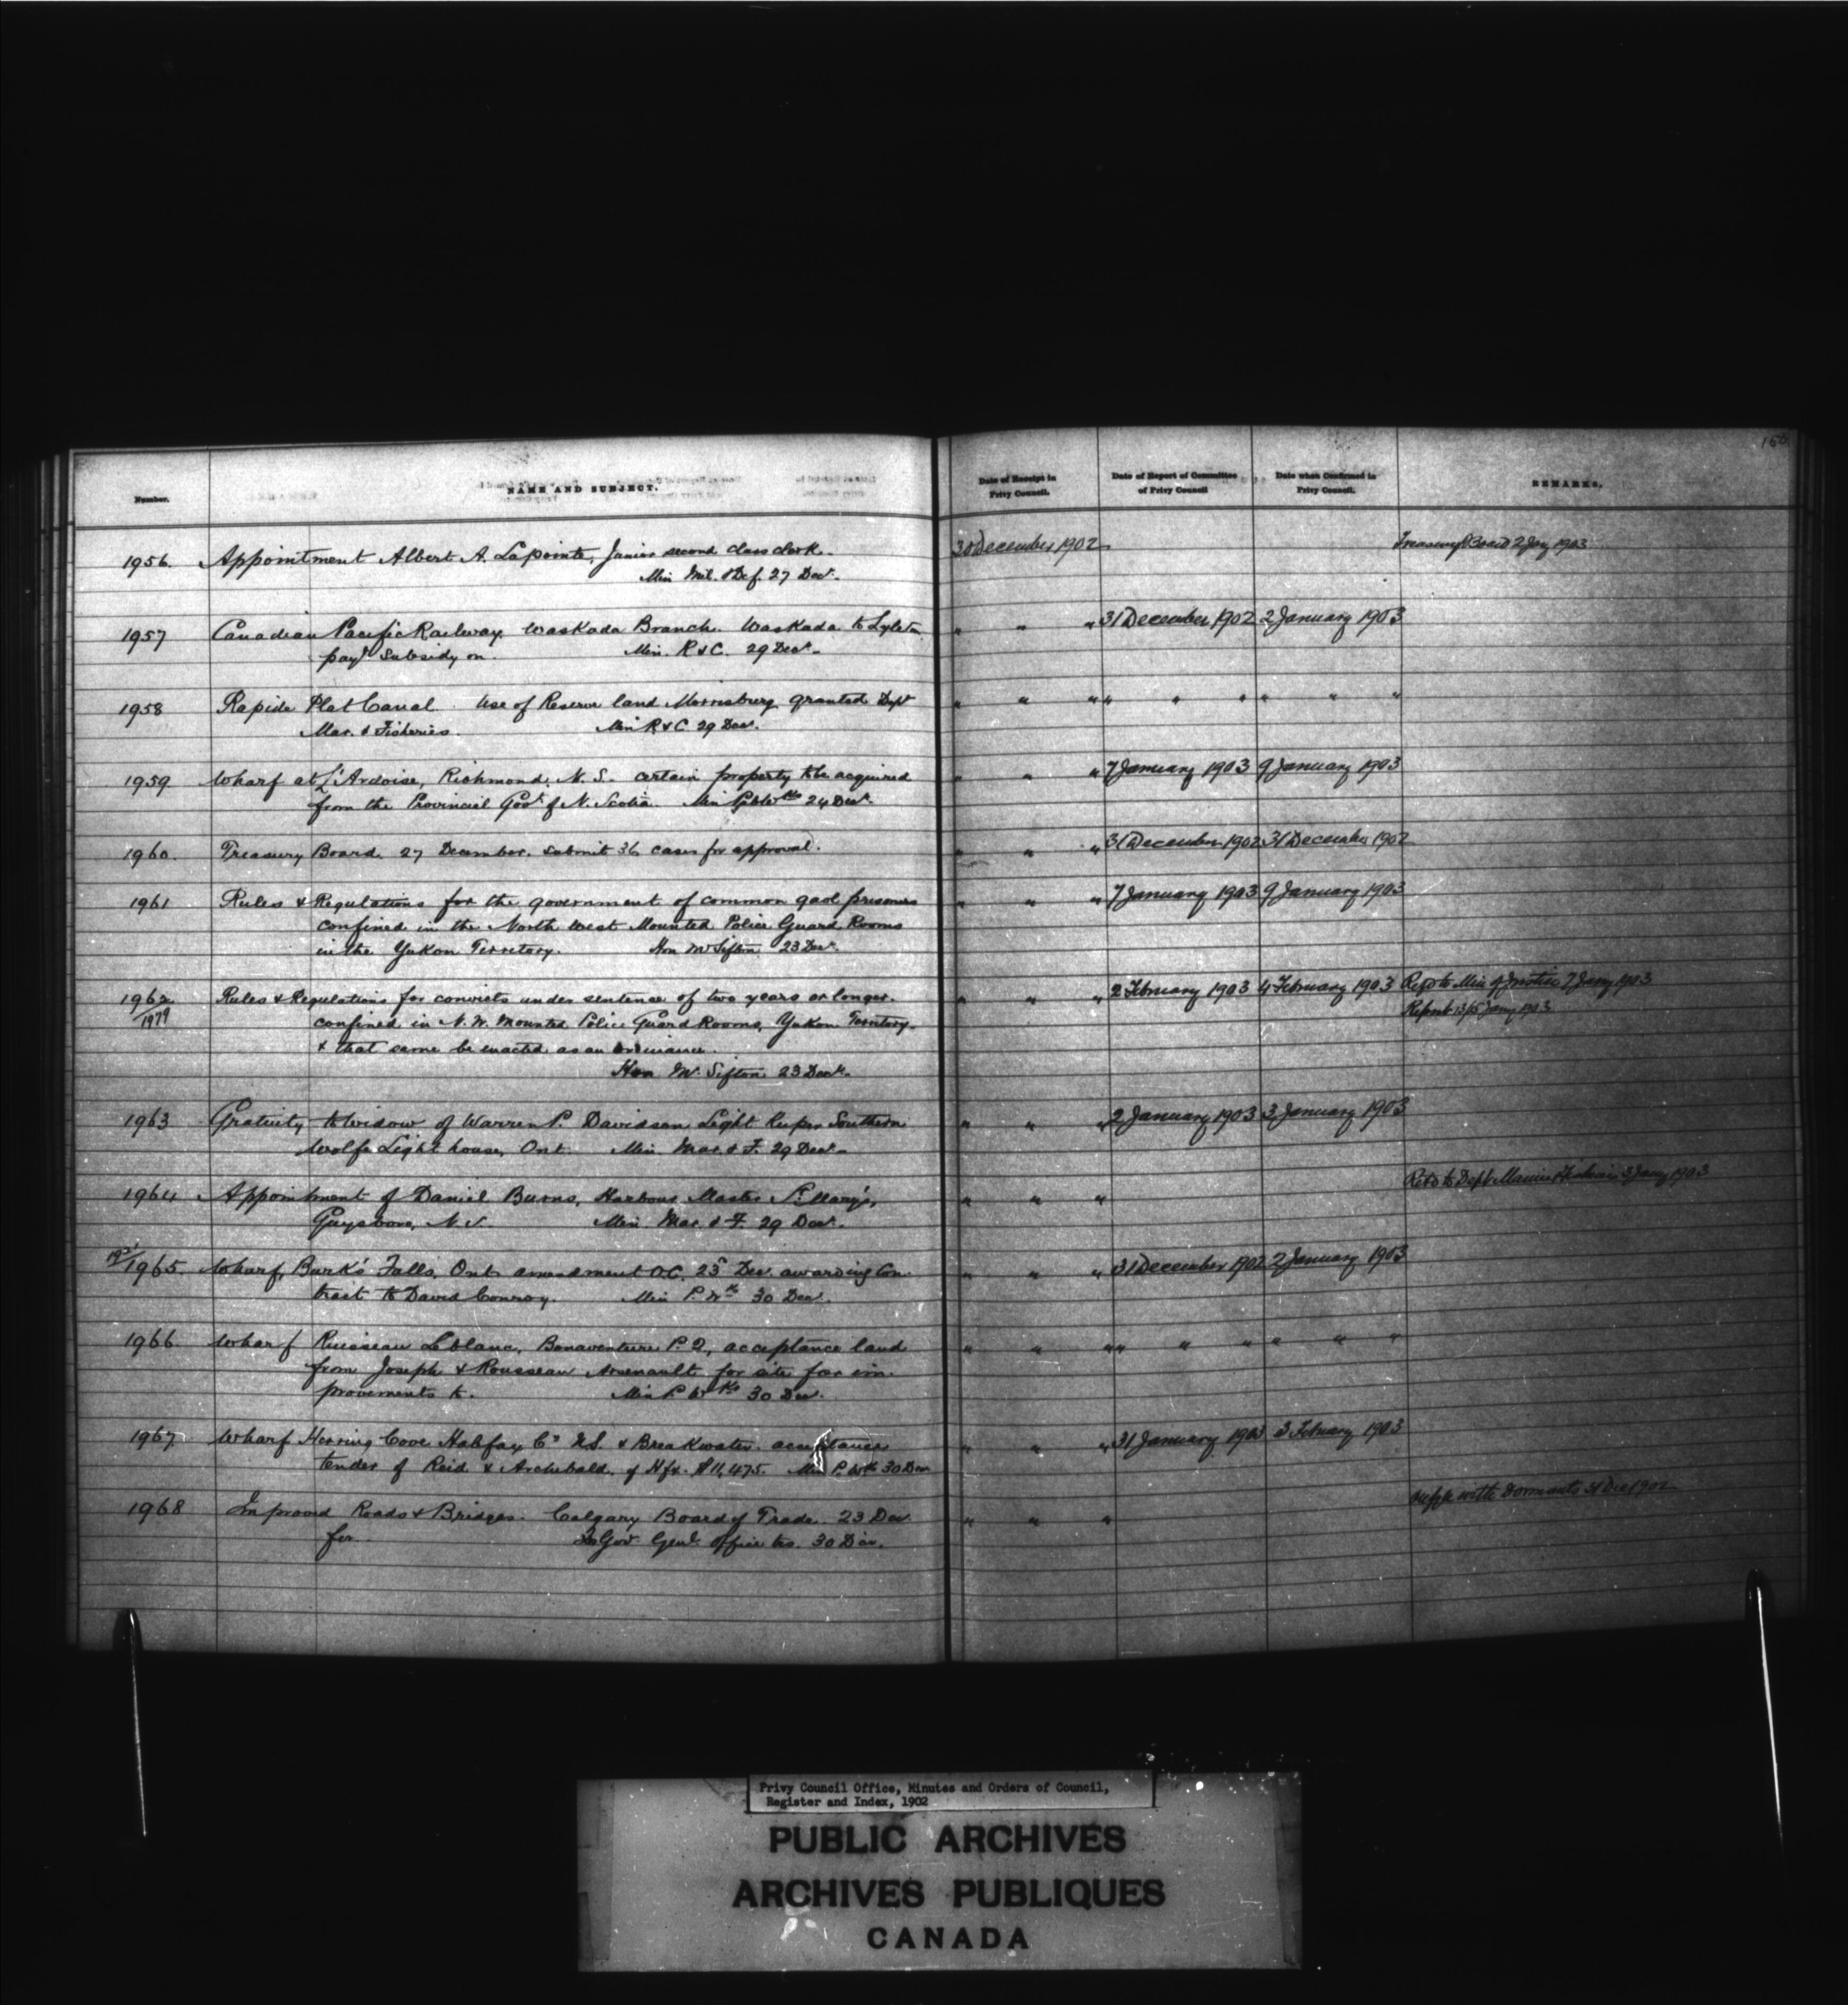 Number.
NAME AND SUBJECT.
Date of Receipt in Privy Council.
Date of Report of Committee of Privy Council
Date when Confirmed in Privy Council.
REMARKS.
1956. Appointment Albert A. Lapointe, Junior second class clerk. 30 December 1902 Treasury Board 2 Jay 1903
Min Mil. & Def. 27 Decr.
1957 Canadian Pacific Railway Waskada Branch. Waskada to Lyleton " " " 31 December 1902 2 January 1903
payt subsidy on. Min. R & C. 29 Decr.
1958 Rapide Plat Canal. Use of Reserve land Morrisburg granted Dept " " " " " " " " "
Mar. & Fisheries. Min R & C 29 Decr.
1959 Wharf at L'Ardoise, Richmond, N.S. certain property to be acquired " " " 7 January 1903 9 January 1903
from the Provincial Govt of N. Scotia. Min Pub Wks 24 Decr.
1960. Treasury Board. 27 December. submit 36 cases for approval. " " " 31 December 1902 31 December 1902
1961 Rules & Regulations for the government of common gaol prisoners " " " 7 January 1903 9 January 1903
confined in the North West Mounted Police Guard Rooms
in the Yukon Territory. Hon Mr Sifton 23 Decr.
1962 Rules & Regulations for convicts under sentence of two years or longer. " " " 2 February 1903 4 February 1903 Refd to Min of Justice 7 Jany 1903
/1979 confined in N.W. Mounted Police Guard Rooms, Yukon Territory. Report 13/15 Jany 1903
& that same be enacted as an ordinance.
Hon Mr. Sifton 23 Decr.
1963 Gratuity to widow of Warren P. Davidson Light Keeper Southern " " " 2 January 1903 3 January 1903
Wolfe Light house, Ont. Min. Mar. & F. 29 Decr.
1964 Appointment of Daniel Burns, Harbour Master St. Mary's, " " " Retd to Dept Marine & Fisheries 3 Jany 1903
Guysboro, N.S. Min. Mar. & F. 29 Decr.
1965. Wharf, Burk's Falls, Ont. amendment O.C. 23 Dec. awarding Con- " " " 31 December 1902 2 January 1903
tract to David Conroy. Min P. Wks 30 Decr.
1966 Wharf Ruisseau Leblanc, Bonaventure P.Q, acceptance land " " " " " " " " "
from Joseph & Rousseau Arsenault for site for im-
provements to. Min P. Wks 30 Dec.
1967 Wharf Herring Cove Halifax Co N.S. & Breakwater. acceptance " " " 31 January 1903 3 February 1903
tender of Reid & Archibald, of Hfx. $11,475. Min P. Wks 30 Dec
1968 Improved Roads & Bridges. Calgary Board of Trade. 23 Dec " " " with Dormants 31 Dec 1902
for Govr Genl office 30 Dec.
Privy Council Office, Minutes and Orders of Council,
Register and Index, 1902
PUBLIC ARCHIVES
ARCHIVES PUBLIQUES
CANADA